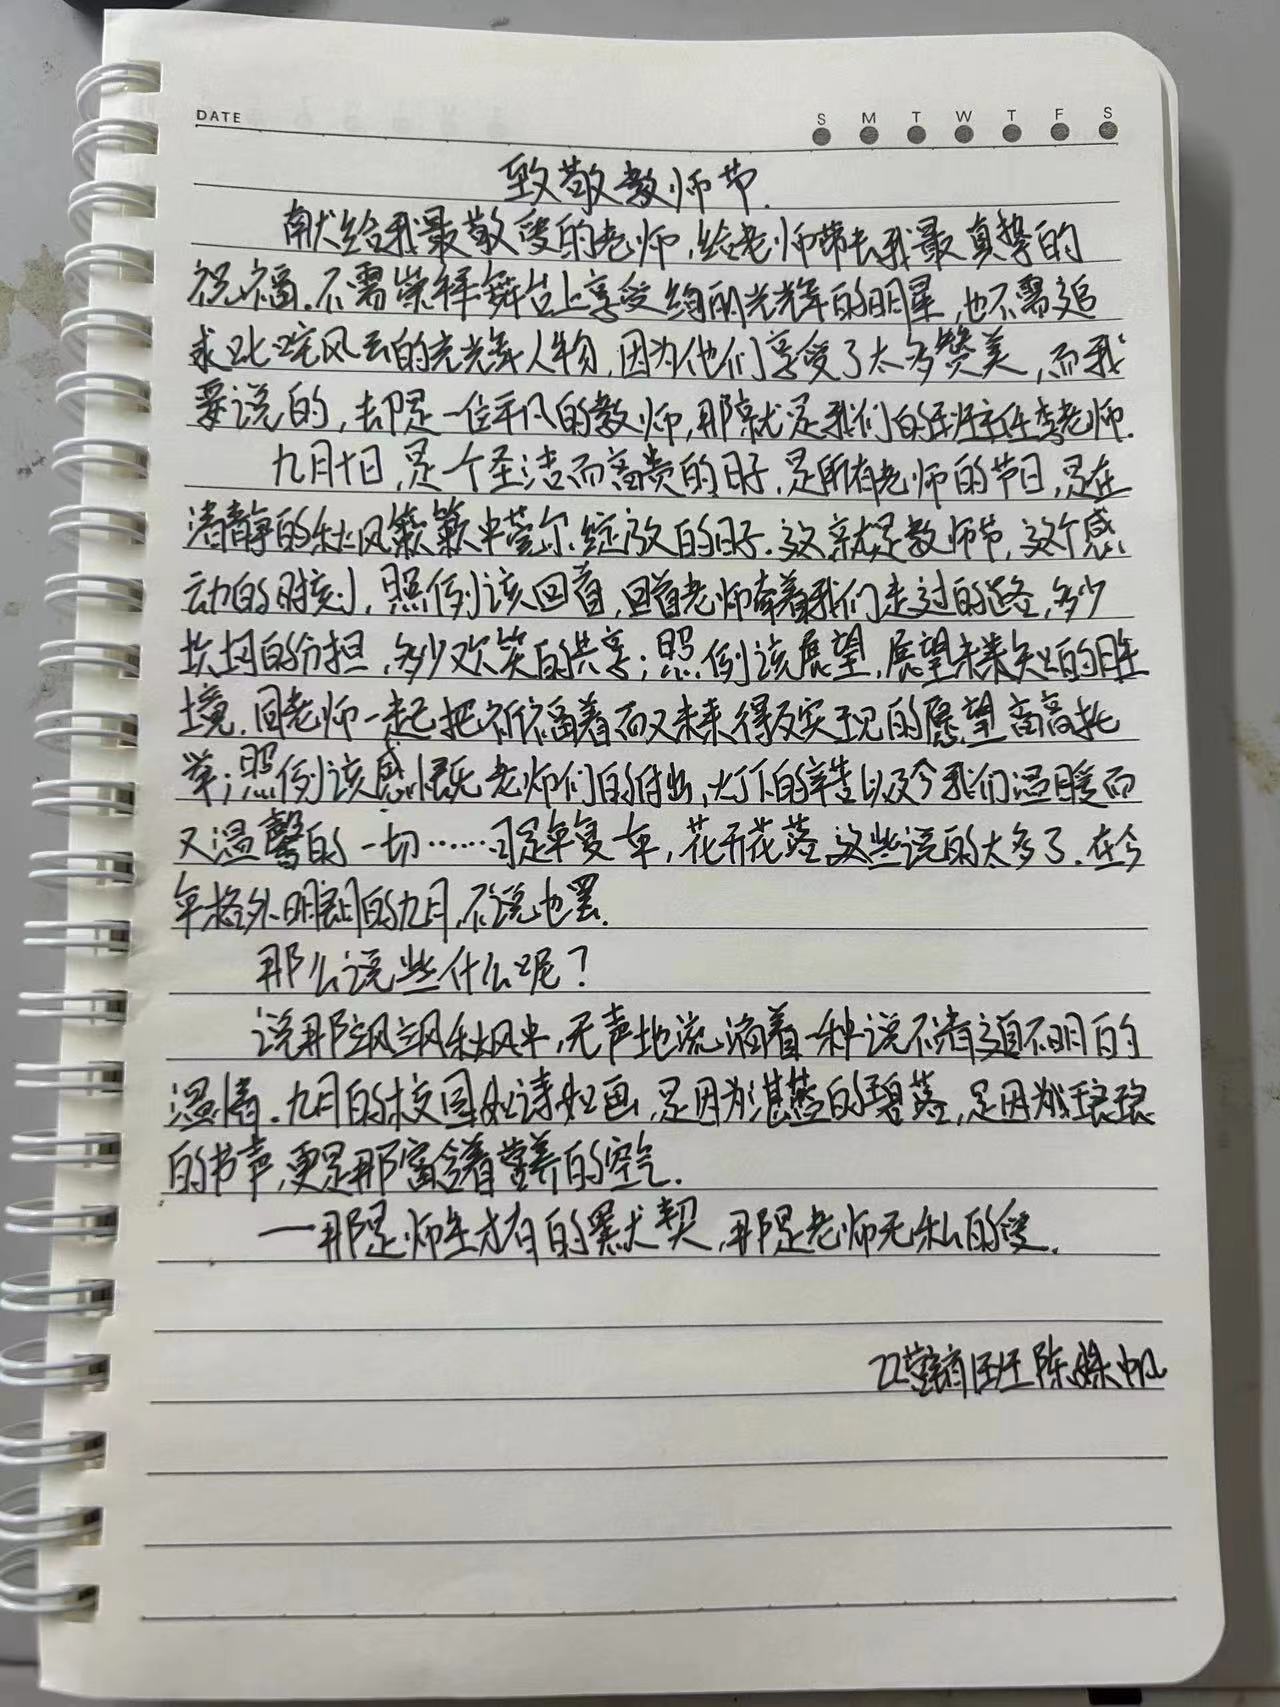 DATE
S M T W T F S
致敬教师节.
献给我最敬爱的老师,给老师带去我最真挚的
祝福.不需崇拜舞台上享受绚丽光辉的明星,也不需追
求叱咤风云的光辉人物,因为他们享受了太多赞美,而我
要说的,却是一位平凡的教师,那就是我们的班主任李老师.
九月十日,是一个圣洁而高贵的日子,是所有老师的节日,是在
清静的秋风簌簌中莞尔绽放的日子.这就是教师节,这个感
动的时刻,照例该回首,回首老师牵着我们走过的路,多少
坎坷的分担,多少欢笑的共享;照例该展望,展望未来知的胜
境.同老师一起把祈福着而又未来得及实现的愿望高高托
举;照例该感慨老师们的付出,灯下的辛苦以及令我们温暖而
又温馨的一切……可是年复年,花开花落,这些说的太多了.在今
年格外明朗的九月,不说也罢.
那么说些什么呢?
说那阵飒飒秋风中,无声地流淌着一种说不清道不明的
温情.九月的校园如诗如画,是因为湛蓝的碧落,是因为琅琅
的书声,更是那富含着营养的空气.
一那是师生才有的默契,那是老师无私的爱.
22营销 班 陈 帆